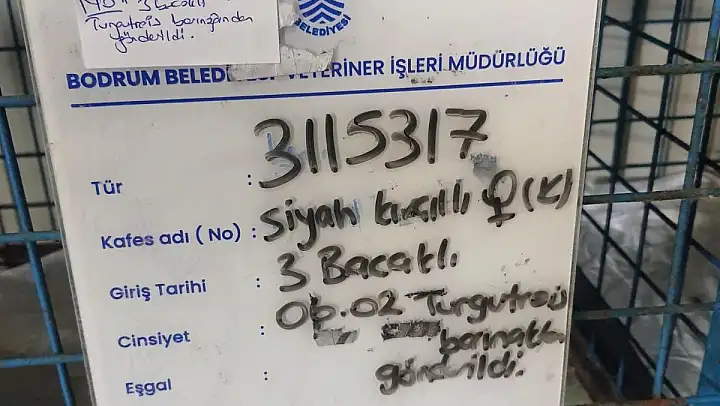 3 Bacaklı
Turgutreis barınağından
gönderildi.
BELEDİYESİ
BODRUM BELEDİYESİ VETERİNER İŞLERİ MÜDÜRLÜĞÜ
Tür : 3115317
Kafes adı ( No) : Siyah kızıllı ♀ (K)
Giriş Tarihi : 3 Bacaklı.
Cinsiyet : 06.02 Turgutreis
barınaktan
Eşgal : gönderildi.